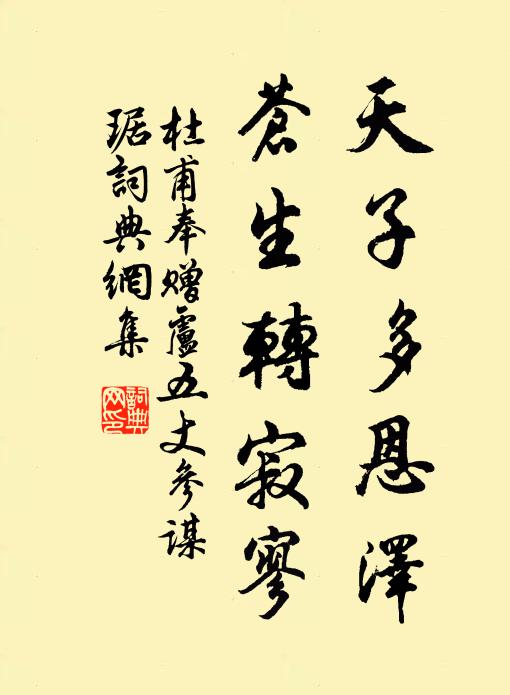 天子多恩澤
蒼生轉寂寥
杜甫奉贈盧五丈參謀
琚詞典網集
詞典
网印